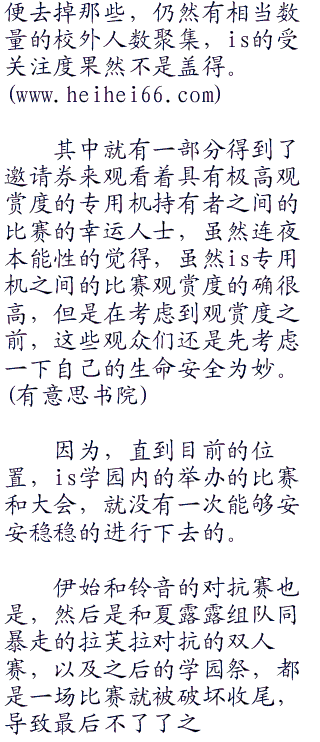 便去掉那些，仍然有相当数
量的校外人数聚集，is的受
关注度果然不是盖得。
(www.heihei66.com)
其中就有一部分得到了
邀请券来观看着具有极高观
赏度的专用机持有者之间的
比赛的幸运人士，虽然连夜
本能性的觉得，虽然is专用
机之间的比赛观赏度的确很
高，但是在考虑到观赏度之
前，这些观众们还是先考虑
一下自己的生命安全为妙。
(有意思书院)
因为，直到目前的位
置，is学园内的举办的比赛
和大会，就没有一次能够安
安稳稳的进行下去的。
伊始和铃音的对抗赛也
是，然后是和夏露露组队同
暴走的拉芙拉对抗的双人
赛，以及之后的学园祭，都
是一场比赛就被破坏收尾，
导致最后不了了之